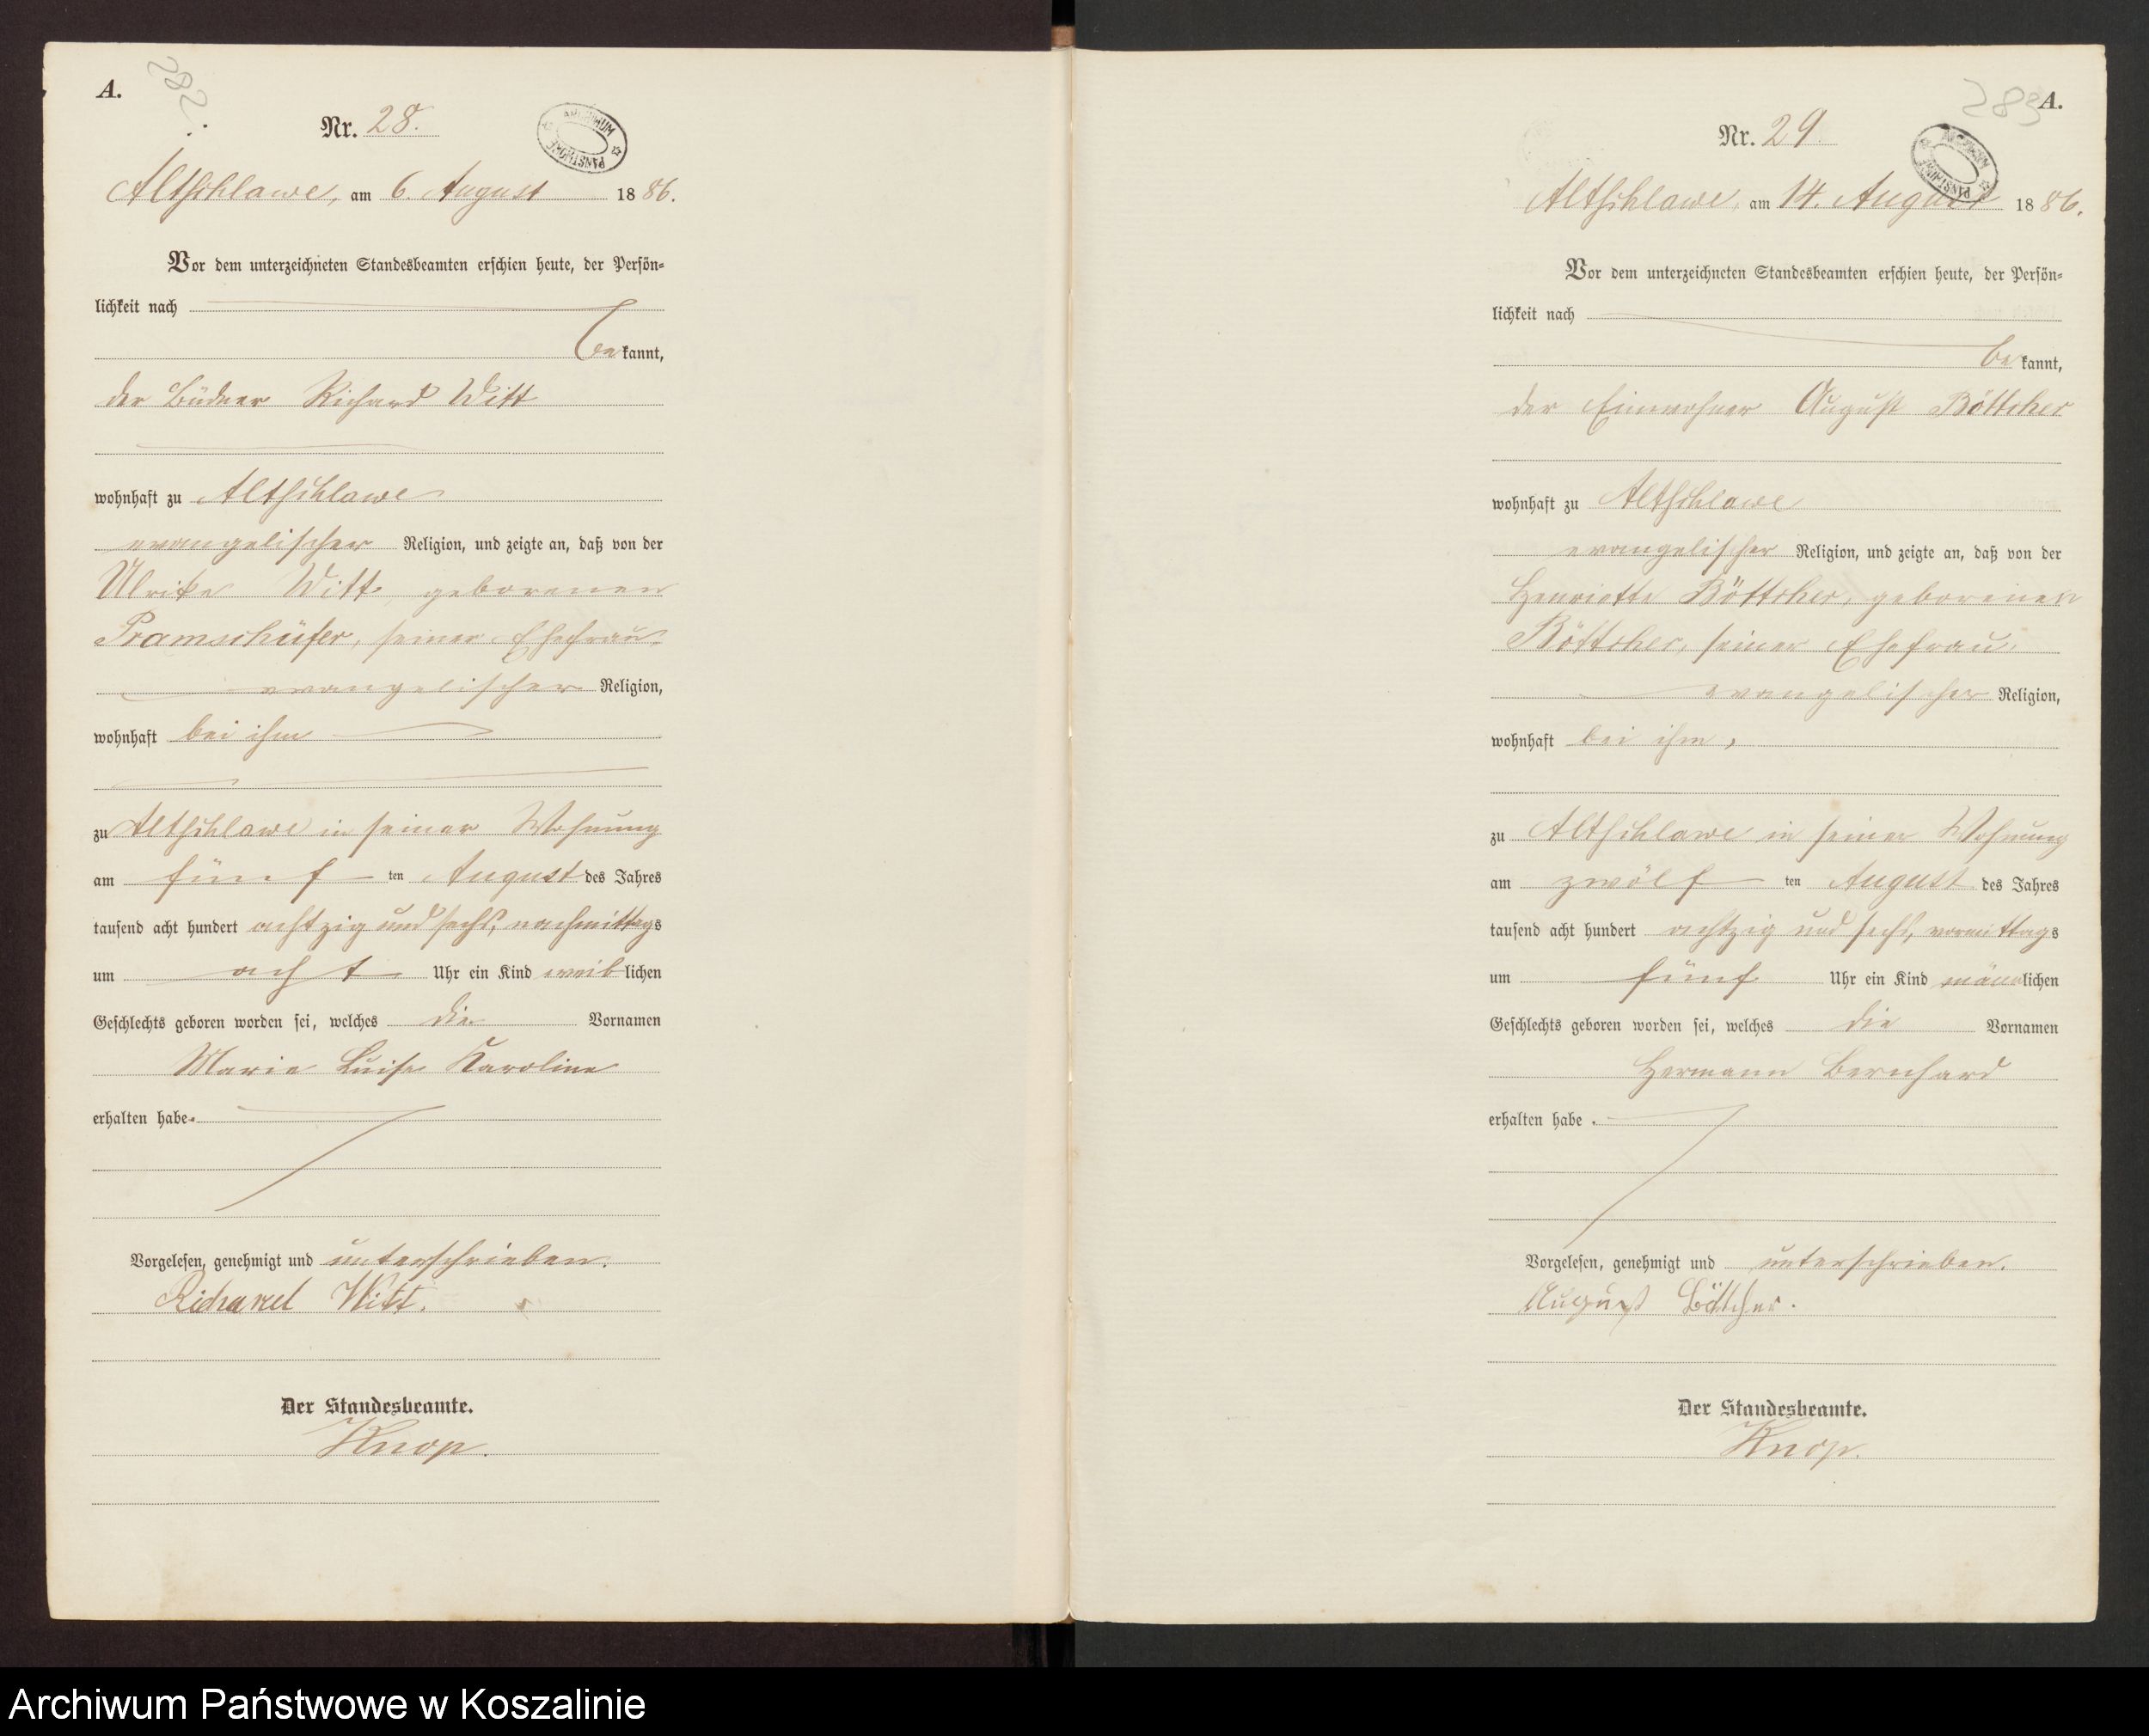 A.
282
Nr. 28.
ARCHIWUM PAŃSTWOWE
Altschlawe, am 6. August 1886.
Vor dem unterzeichneten Standesbeamten erschien heute, der Persön-
lichkeit nach
bekannt,
der Büdner Richard Witt
wohnhaft zu Altschlawe
evangelischer Religion, und zeigte an, daß von der
Ulrike Witt, geborenen
Pramschüfer, seiner Ehefrau
evangelischer Religion,
wohnhaft bei ihm
zu Altschlawe in seiner Wohnung
am fünf ten August des Jahres
tausend acht hundert achtzig und sechs, nachmittags
um acht Uhr ein Kind weiblichen
Geschlechts geboren worden sei, welches die Vornamen
Marie Luise Karoline
erhalten habe.
Vorgelesen, genehmigt und unterschrieben.
Richard Witt.
Der Standesbeamte.
Knop.
283
A.
Nr. 29.
ARCHIWUM PAŃSTWOWE
Altschlawe, am 14. August 1886.
Vor dem unterzeichneten Standesbeamten erschien heute, der Persön-
lichkeit nach
bekannt,
der Einwohner August Böttcher
wohnhaft zu Altschlawe
evangelischer Religion, und zeigte an, daß von der
Henriette Böttcher, geborenen
Böttcher, seiner Ehefrau,
evangelischer Religion,
wohnhaft bei ihm,
zu Altschlawe in seiner Wohnung
am zwölf ten August des Jahres
tausend acht hundert achtzig und sechs, vormittags
um fünf Uhr ein Kind männlichen
Geschlechts geboren worden sei, welches die Vornamen
Hermann Bernhard
erhalten habe.
Vorgelesen, genehmigt und unterschrieben.
August Böttcher.
Der Standesbeamte.
Knop.
Archiwum Państwowe w Koszalinie